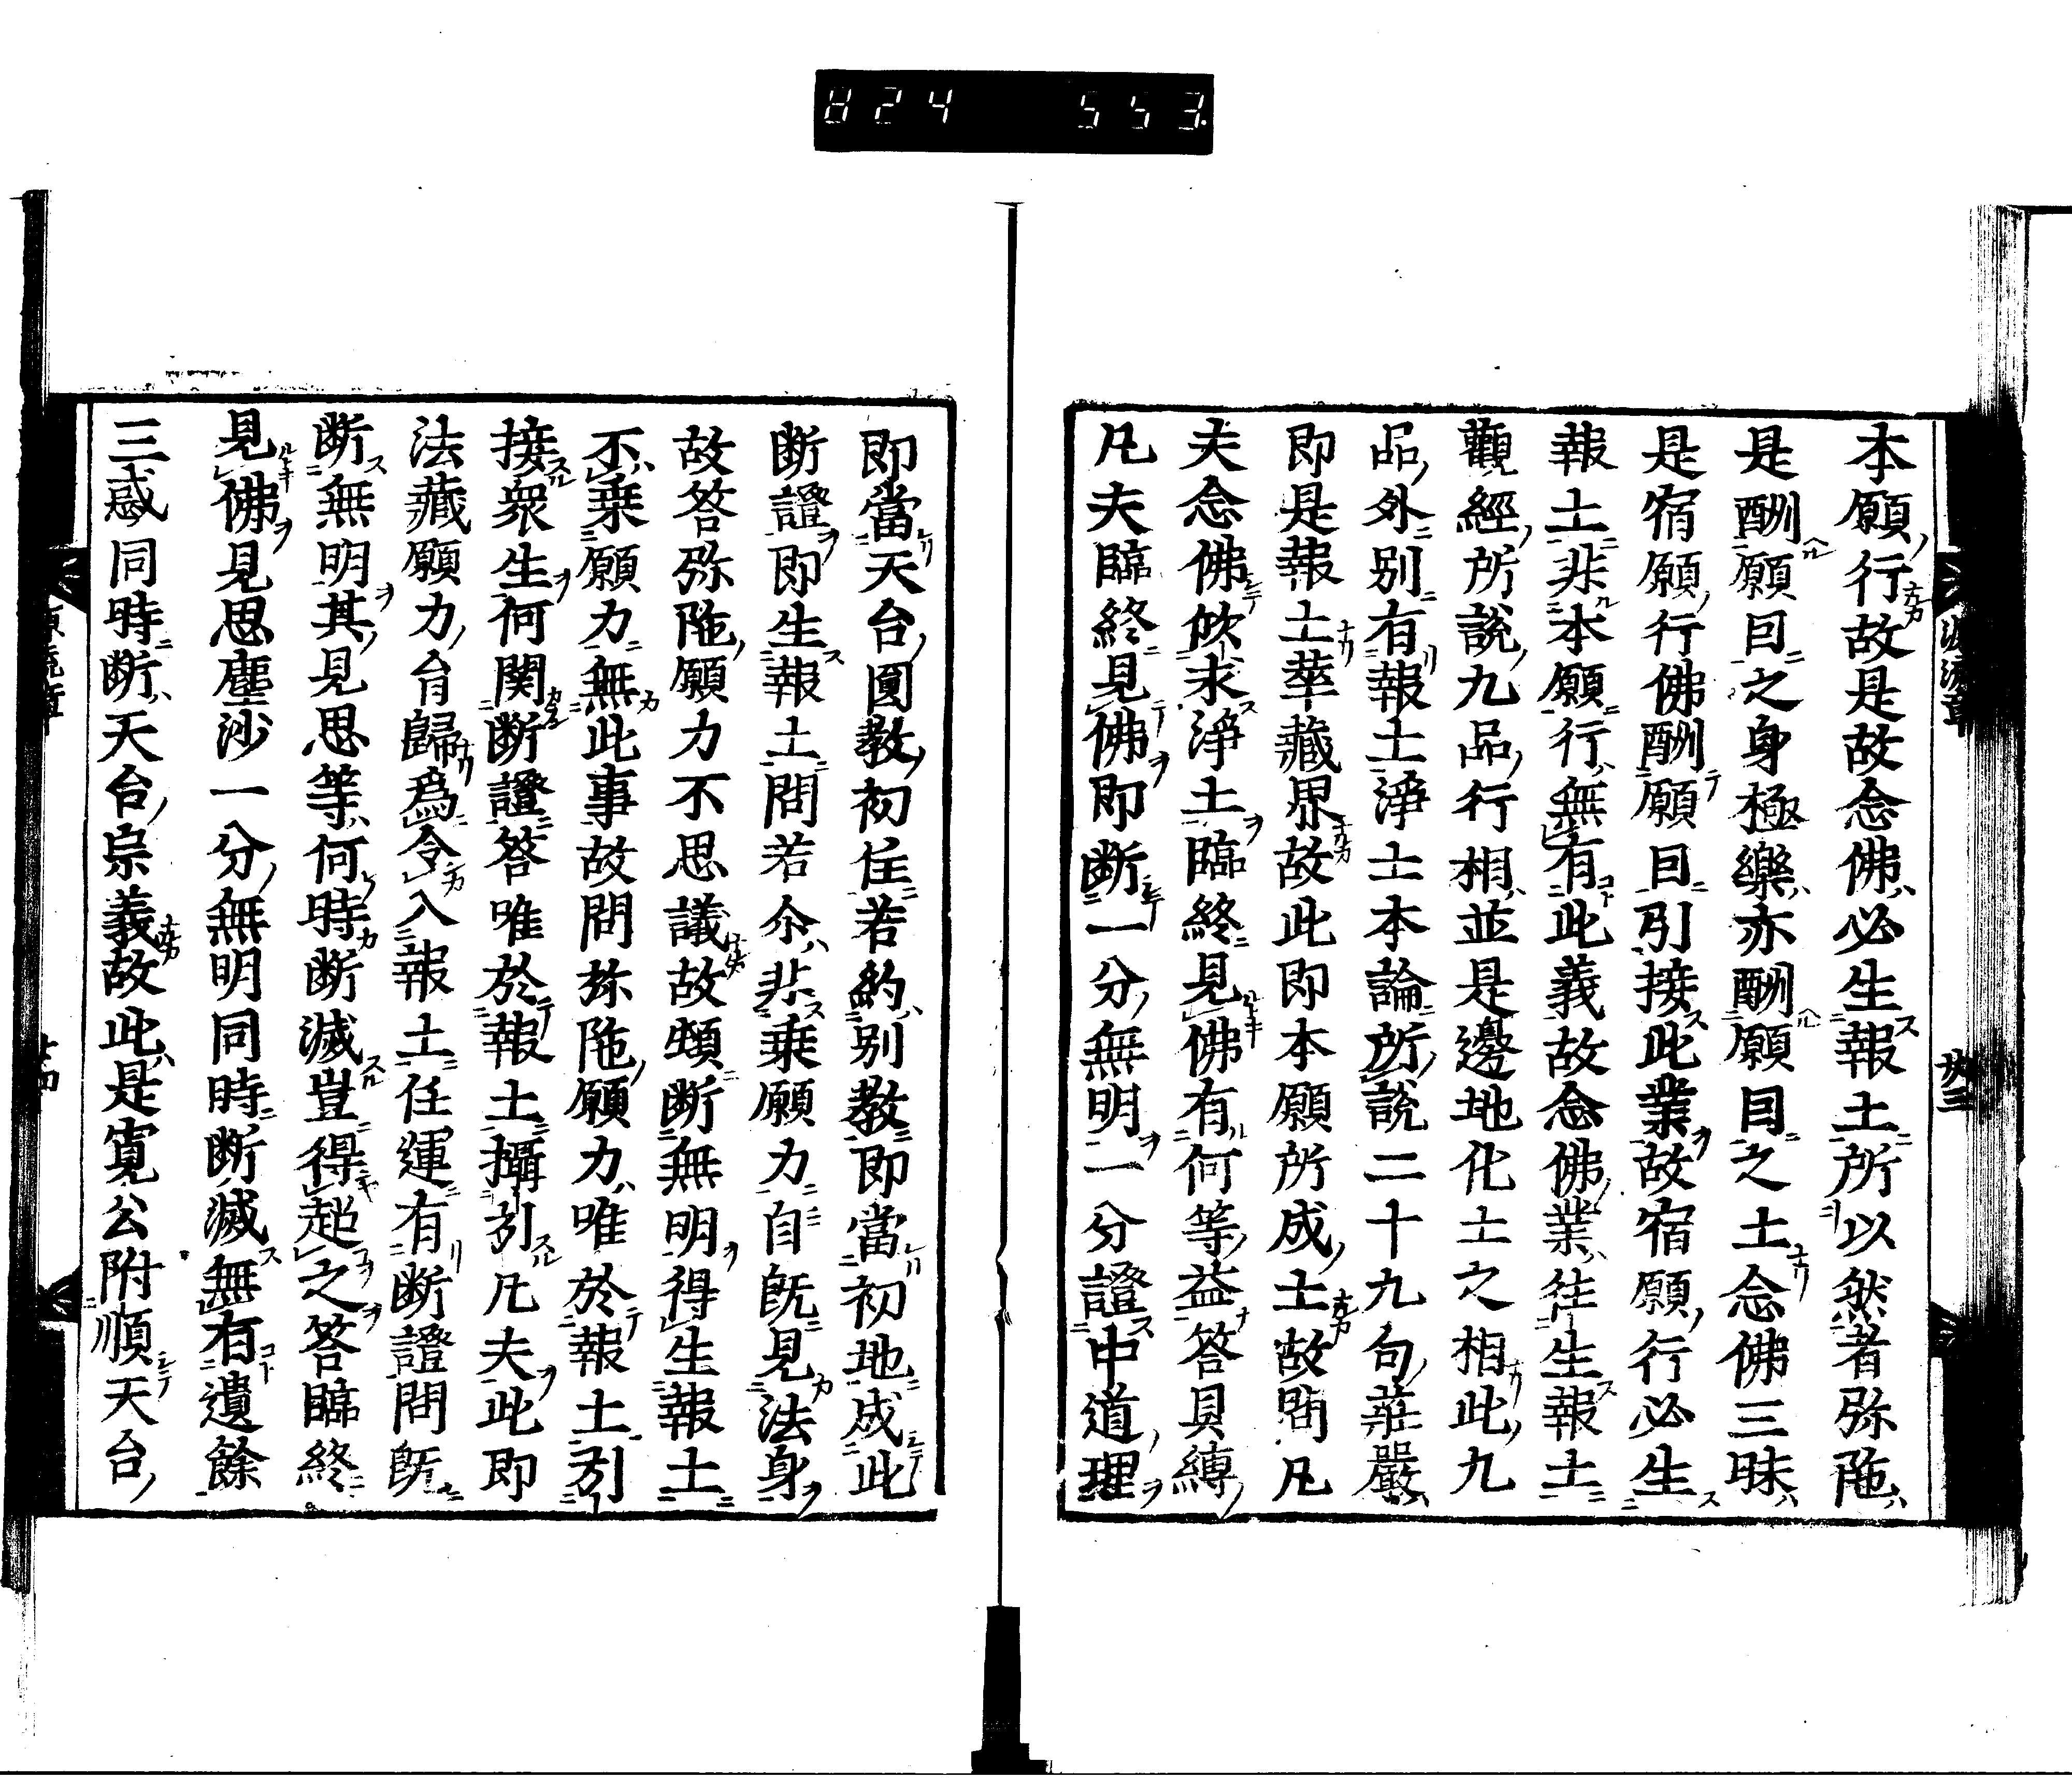 824 553.
本願行故是故念佛必生報土所以然者弥陁
是酬願囙之身極樂亦酬願囙之土念佛三昧
是宿願行佛酬願囙引接此業故宿願行必生
報土非本願行無有此義故念佛業徃生報土
觀經所說九品行相並是邊地化土之相此九
品外别有報土淨土本論所說二十九句莊嚴
即是報土華藏界故此即本願所成土故問凡
夫念佛欣求淨土臨終見佛有何等益答具縛
凡夫臨終見佛即断一分無明一分證中道理
即當天台圓教初住若約别教即當初地成此
断證即生報土問若尒非乗願力自既見法身
故答弥陁願力不思議故頓断無明得生報土
不乗願力無此事故問弥陁願力唯於報土引
接衆生何関断證答唯於報土攝引凡夫此即
法藏願力㫖歸爲令入報土任運有断證問既
断無明其見思等何時断滅豈得起之答臨終
見佛見思塵沙一分無明同時断滅無有遺餘
三惑同時断天台宗義故此是寛公附順天台